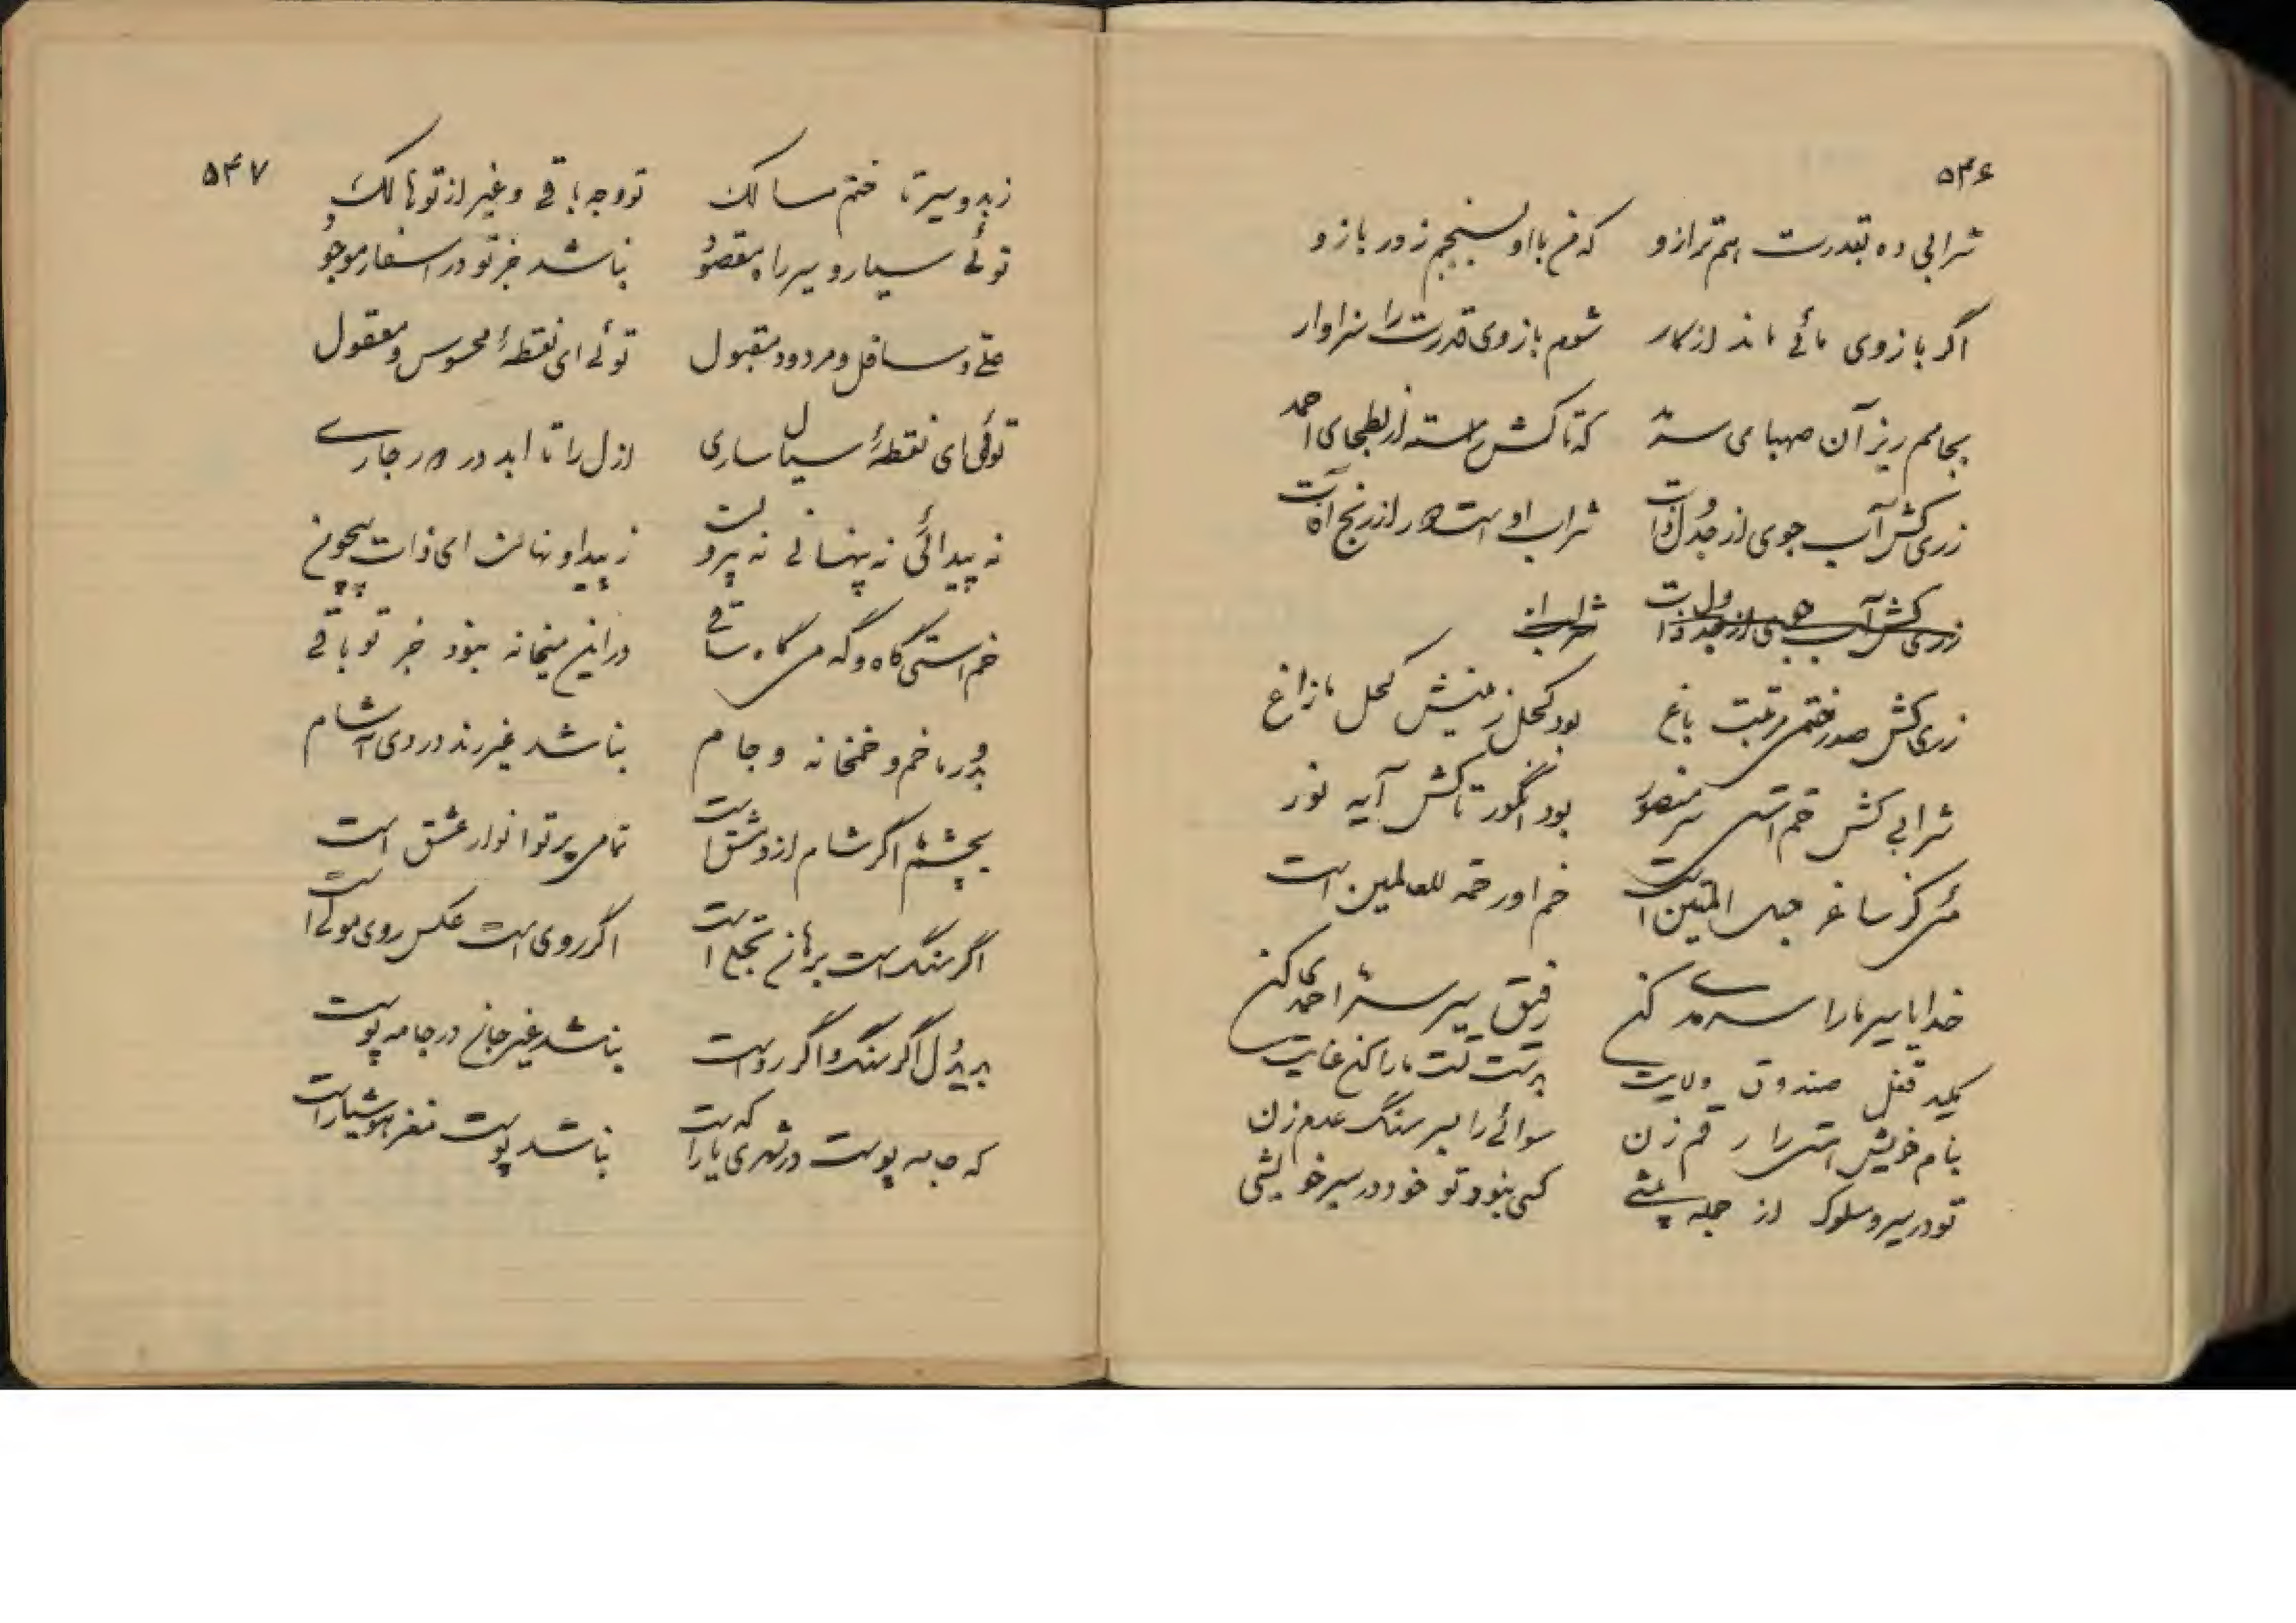 ۵۴۶
شرابی ده بقدرت هم ترازو که من با او بسنجم زور بازو
اگر بازوی مائی ماند از کار شوم بازوی قدرت را سزاوار
بجامم ریز آن صهبای سرمد که تاکش رسته از بطحای احمد
زری کش آب جوی از جدول ذات شراب او است دور از رنج آفات
زری کش آب جوی از جدول ذات شراب او
زری کش صدر ختمی مرتبت باغ بود کحل زمینش کحل مازاغ
شرابی کش خم است سر منصور بود انگور تاکش آیه نور
می کز ساغر حبل المتین است خم او رحمة للعالمین است
خدایا سیر ما را سرمدی کن رفیق سیر ما سر احمدی کن
کلید قفل صندوق ولایت بدست تست ما را کن عنایت
بنام خویش را رقم زن سوائی را بسر سنگ عدم زن
تو در سیر و سلوک از جمله پیشی کسی نبود تو خود در سیر خویشی
۵۴۷
ز بدو سیر تا ختم مسالک تو وجه باقی و غیر از تو هالک
توئی سیار و سیر راه مقصود نباشد جز تو در اسفار موجود
و سافل و مردود و مقبول توئی ای نقطهٔ محسوس و معقول
توئی ای نقطهٔ سیال ساری ازل را تا ابد در دور جاری
نه پیدائی نه پنهانی نه بیرون ز پیدا و نهانت ای ذات بیچون
خم استی گاه و گه می گاه ساقی در این میخانه نبود جز تو باقی
بدور ما خم و خمخانه و جام نباشد غیر رند دردی آشام
بچشمم اگر شام از دمشق است تمامی پرتو انوار عشق است
اگر سنگ است برهان تجلی است اگر روی است عکس روی مولی است
بر بیدل اگر سنگ و اگر روست نباشد غیر جان در جامه پوست
که جامه پوست در شهری که یار است نباشد پوست مغز هوشیار است